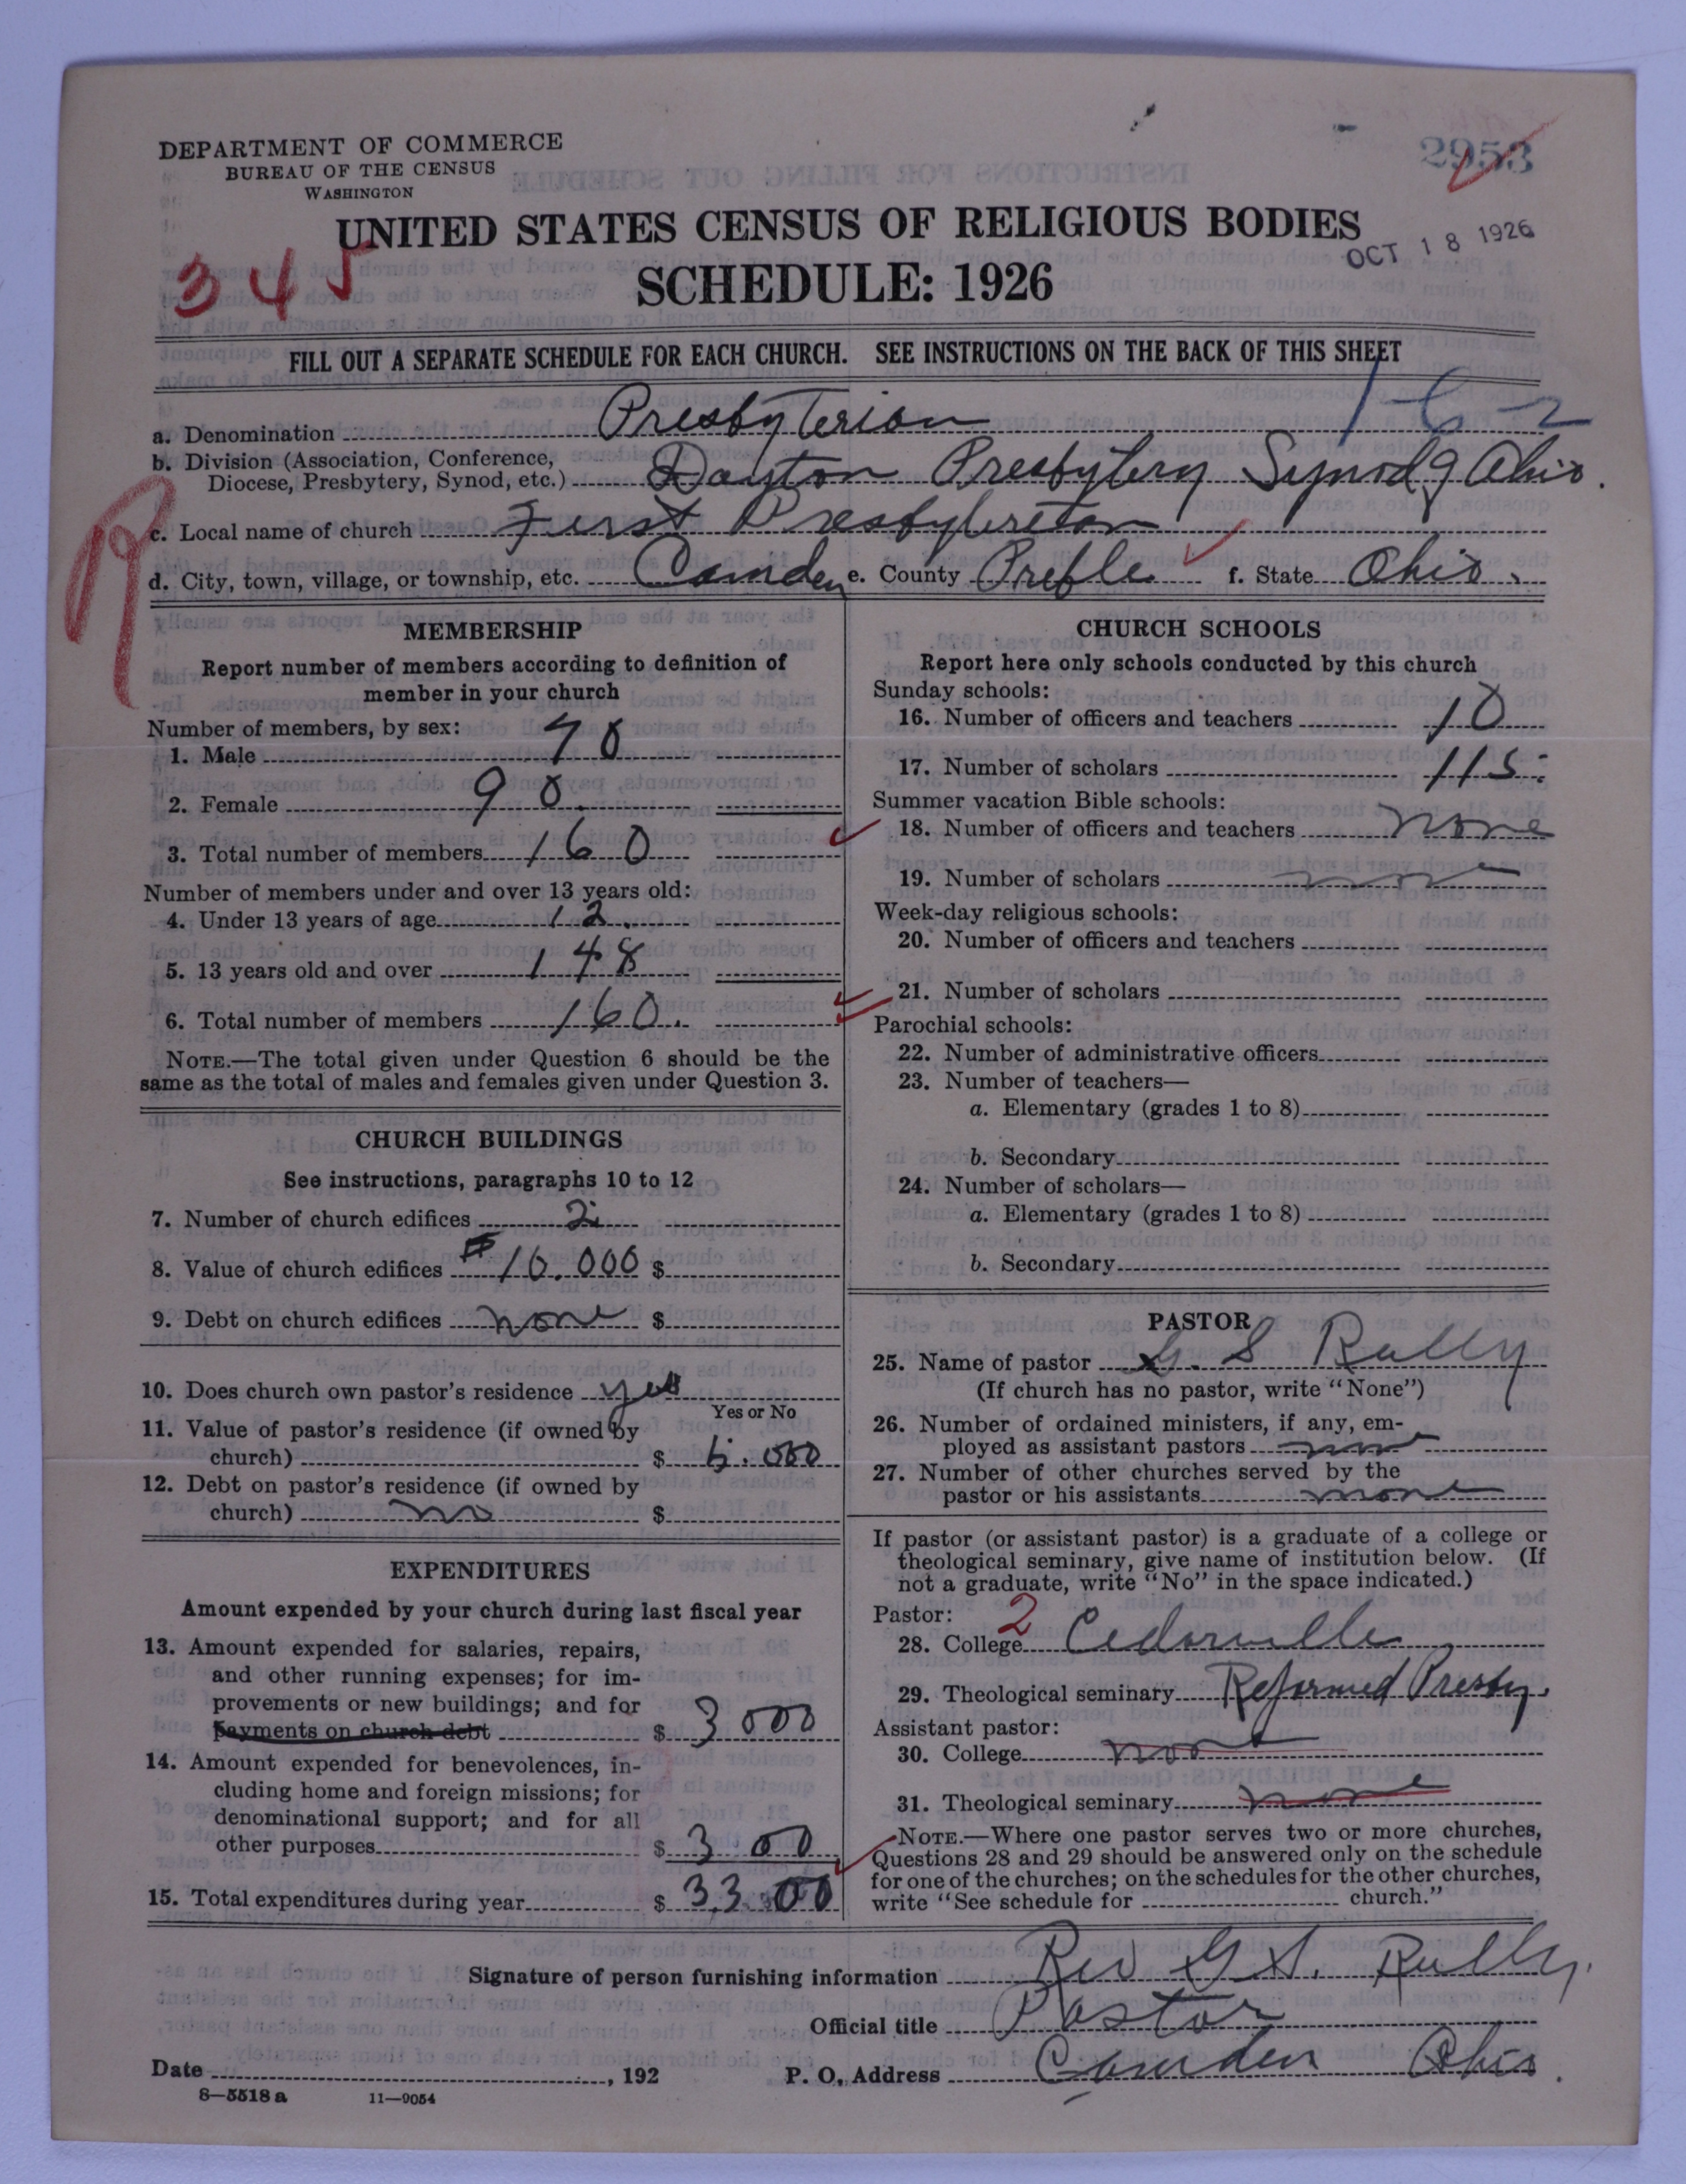 DEPARTMENT OF COMMERCE
BUREAU OF THE CENSUS
WASHINGTON
2953
UNITED STATES CENSUS OF RELIGIOUS BODIES
OCT 18 1926
345
SCHEDULE: 1926
FILL OUT A SEPARATE SCHEDULE FOR EACH CHURCH. SEE INSTRUCTIONS ON THE BACK OF THIS SHEET
1-6-2
a. Denomination Presbyterian
b. Division (Association, Conference,
Diocese, Presbytery, Synod, etc.) Dayton Presbytery Synod of Ohio.
R
c. Local name of church First Presbyterian
d. City, town, village, or township, etc. Camden e. County Preble f. State Ohio.
MEMBERSHIP
Report number of members according to definition of
member in your church
Number of members, by sex:
1. Male 70
2. Female 90.
3. Total number of members 160
Number of members under and over 13 years old:
4. Under 13 years of age 12.
5. 13 years old and over 148
6. Total number of members 160.
NOTE.—The total given under Question 6 should be the
same as the total of males and females given under Question 3.
CHURCH BUILDINGS
See instructions, paragraphs 10 to 12
7. Number of church edifices 2
8. Value of church edifices $10.000 $
9. Debt on church edifices none $
10. Does church own pastor's residence yes
Yes or No
11. Value of pastor's residence (if owned by
church) $ 6.000
12. Debt on pastor's residence (if owned by
church) no $
EXPENDITURES
Amount expended by your church during last fiscal year
13. Amount expended for salaries, repairs,
and other running expenses; for im-
provements or new buildings; and for
payments on church debt $ 3000
14. Amount expended for benevolences, in-
cluding home and foreign missions; for
denominational support; and for all
other purposes $ 300
15. Total expenditures during year $ 3300
CHURCH SCHOOLS
Report here only schools conducted by this church
Sunday schools:
16. Number of officers and teachers 10
17. Number of scholars 115
Summer vacation Bible schools:
18. Number of officers and teachers none
19. Number of scholars none
Week-day religious schools:
20. Number of officers and teachers
21. Number of scholars
Parochial schools:
22. Number of administrative officers
23. Number of teachers—
a. Elementary (grades 1 to 8)
b. Secondary
24. Number of scholars—
a. Elementary (grades 1 to 8)
b. Secondary
PASTOR
25. Name of pastor G. S
(If church has no pastor, write "None")
26. Number of ordained ministers, if any, em-
ployed as assistant pastors none
27. Number of other churches served by the
pastor or his assistants none
If pastor (or assistant pastor) is a graduate of a college or
theological seminary, give name of institution below. (If
not a graduate, write "No" in the space indicated.)
Pastor: 2
28. College Cedarville
29. Theological seminary Reformed Presby.
Assistant pastor:
30. College none
31. Theological seminary none
NOTE.—Where one pastor serves two or more churches,
Questions 28 and 29 should be answered only on the schedule
for one of the churches; on the schedules for the other churches,
write "See schedule for church."
Signature of person furnishing information Rev G S.
Official title Pastor
Date , 192 P. O. Address Camden Ohio.
8—5518 a 11—9054